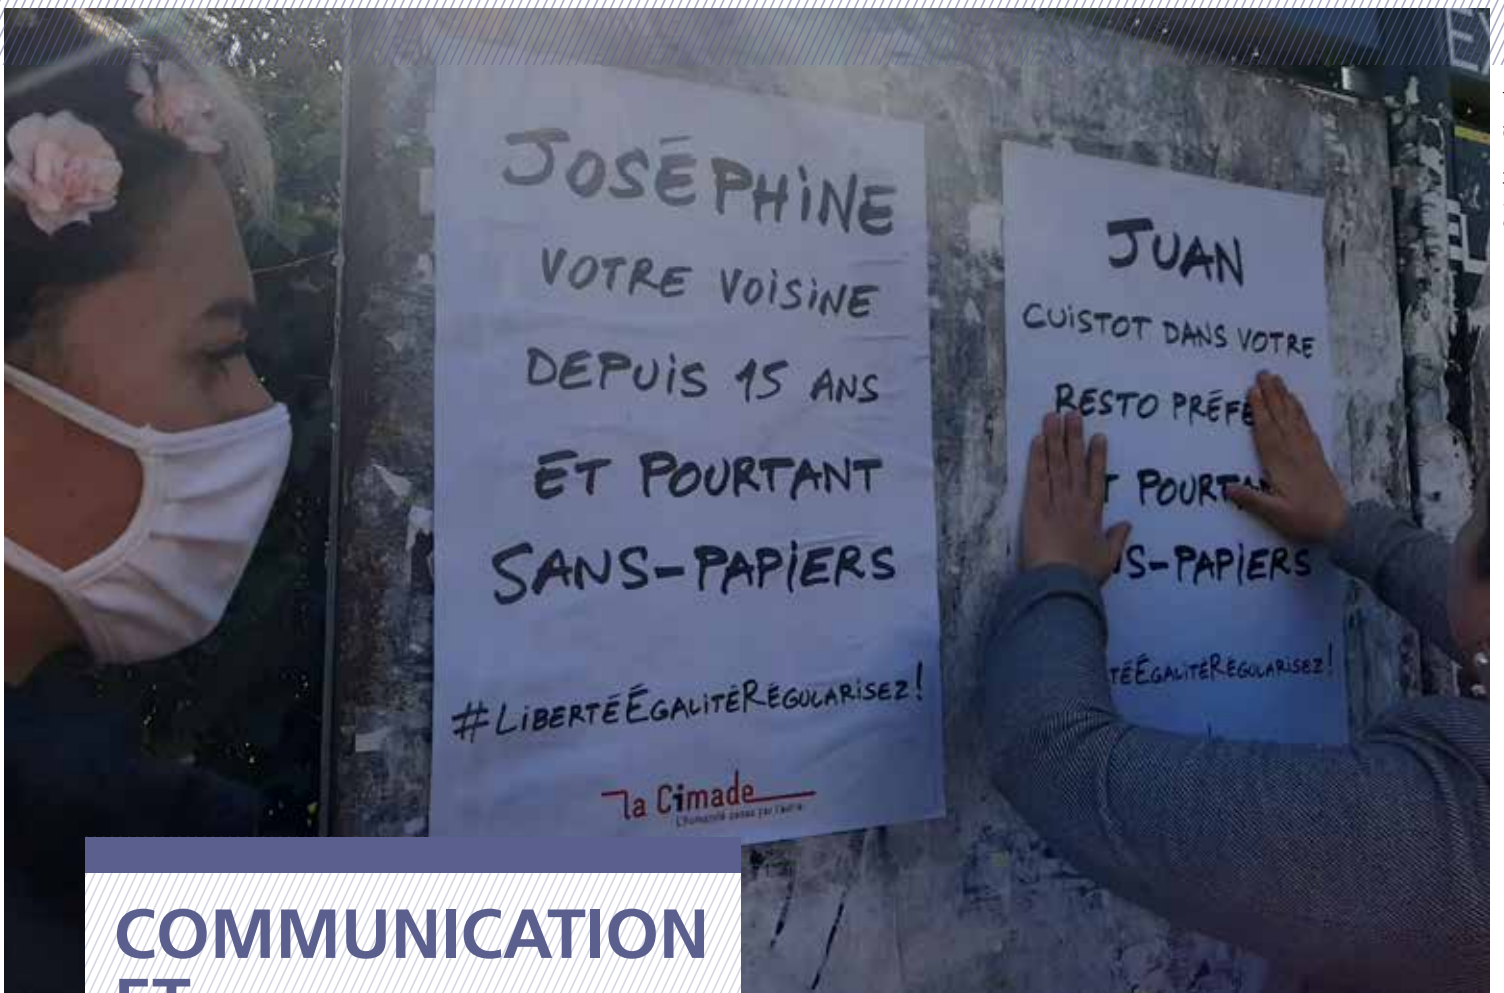 JOSÉPHINE
VOTRE VOISINE
DEPUIS 15 ANS
ET POURTANT
SANS-PAPIERS
#LIBERTÉÉGALITÉRÉGULARISEZ!
la Cimade
L'humanité passe par l'autre
JUAN
CUISTOT DANS VOTRE
RESTO PRÉFÉ
T POURTAN
S-PAPIERS
TÉÉGALITÉRÉGULARISEZ!
COMMUNICATION
ET